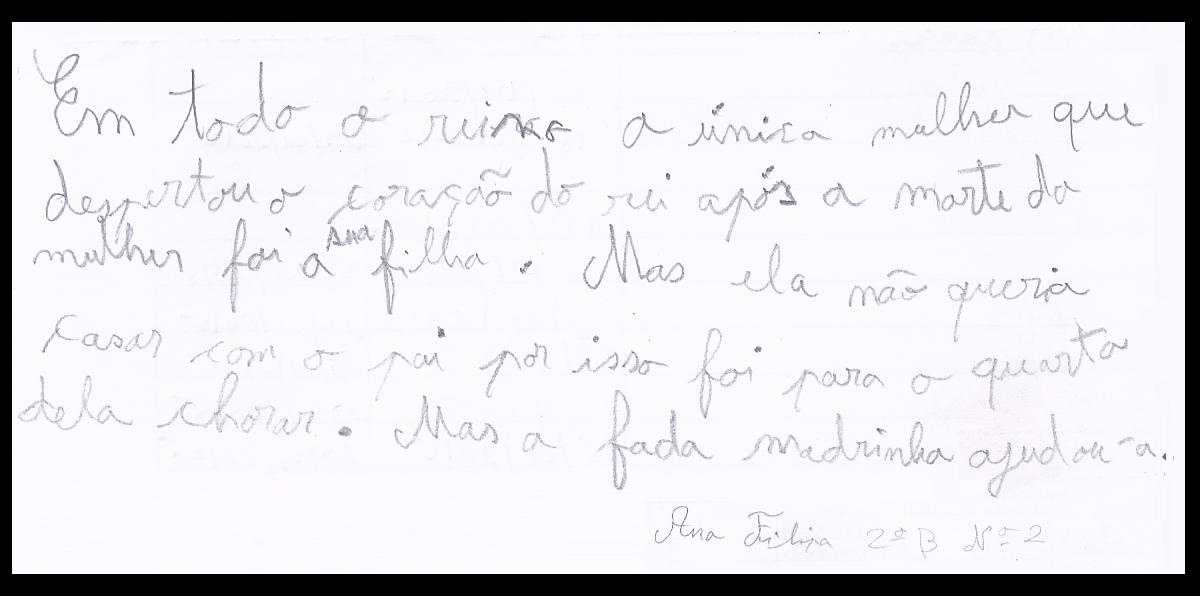 Em todo o reino a única mulher que
despertou o coração do rei após a morte da
mulher foi a sua filha. Mas ela não queria
casar com o pai por isso foi para o quarto
dela chorar. Mas a fada madrinha ajudou-a.
Ana Filipa 2º B Nº 2